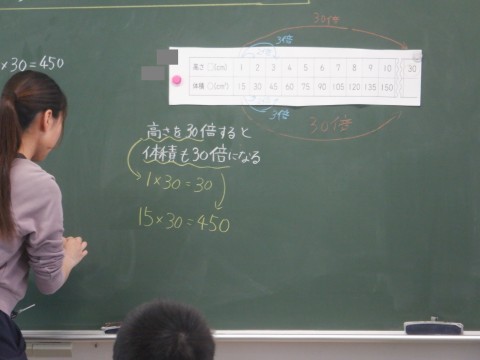 ×30=450
30倍
3倍
高さ○(cm) 1 2 3 4 5 6 7 8 9 10 30
体積○(cm³) 15 30 45 60 75 90 105 120 135 150
3倍
30倍
高さを30倍すると
体積も30倍になる
1×30=30
15×30=450